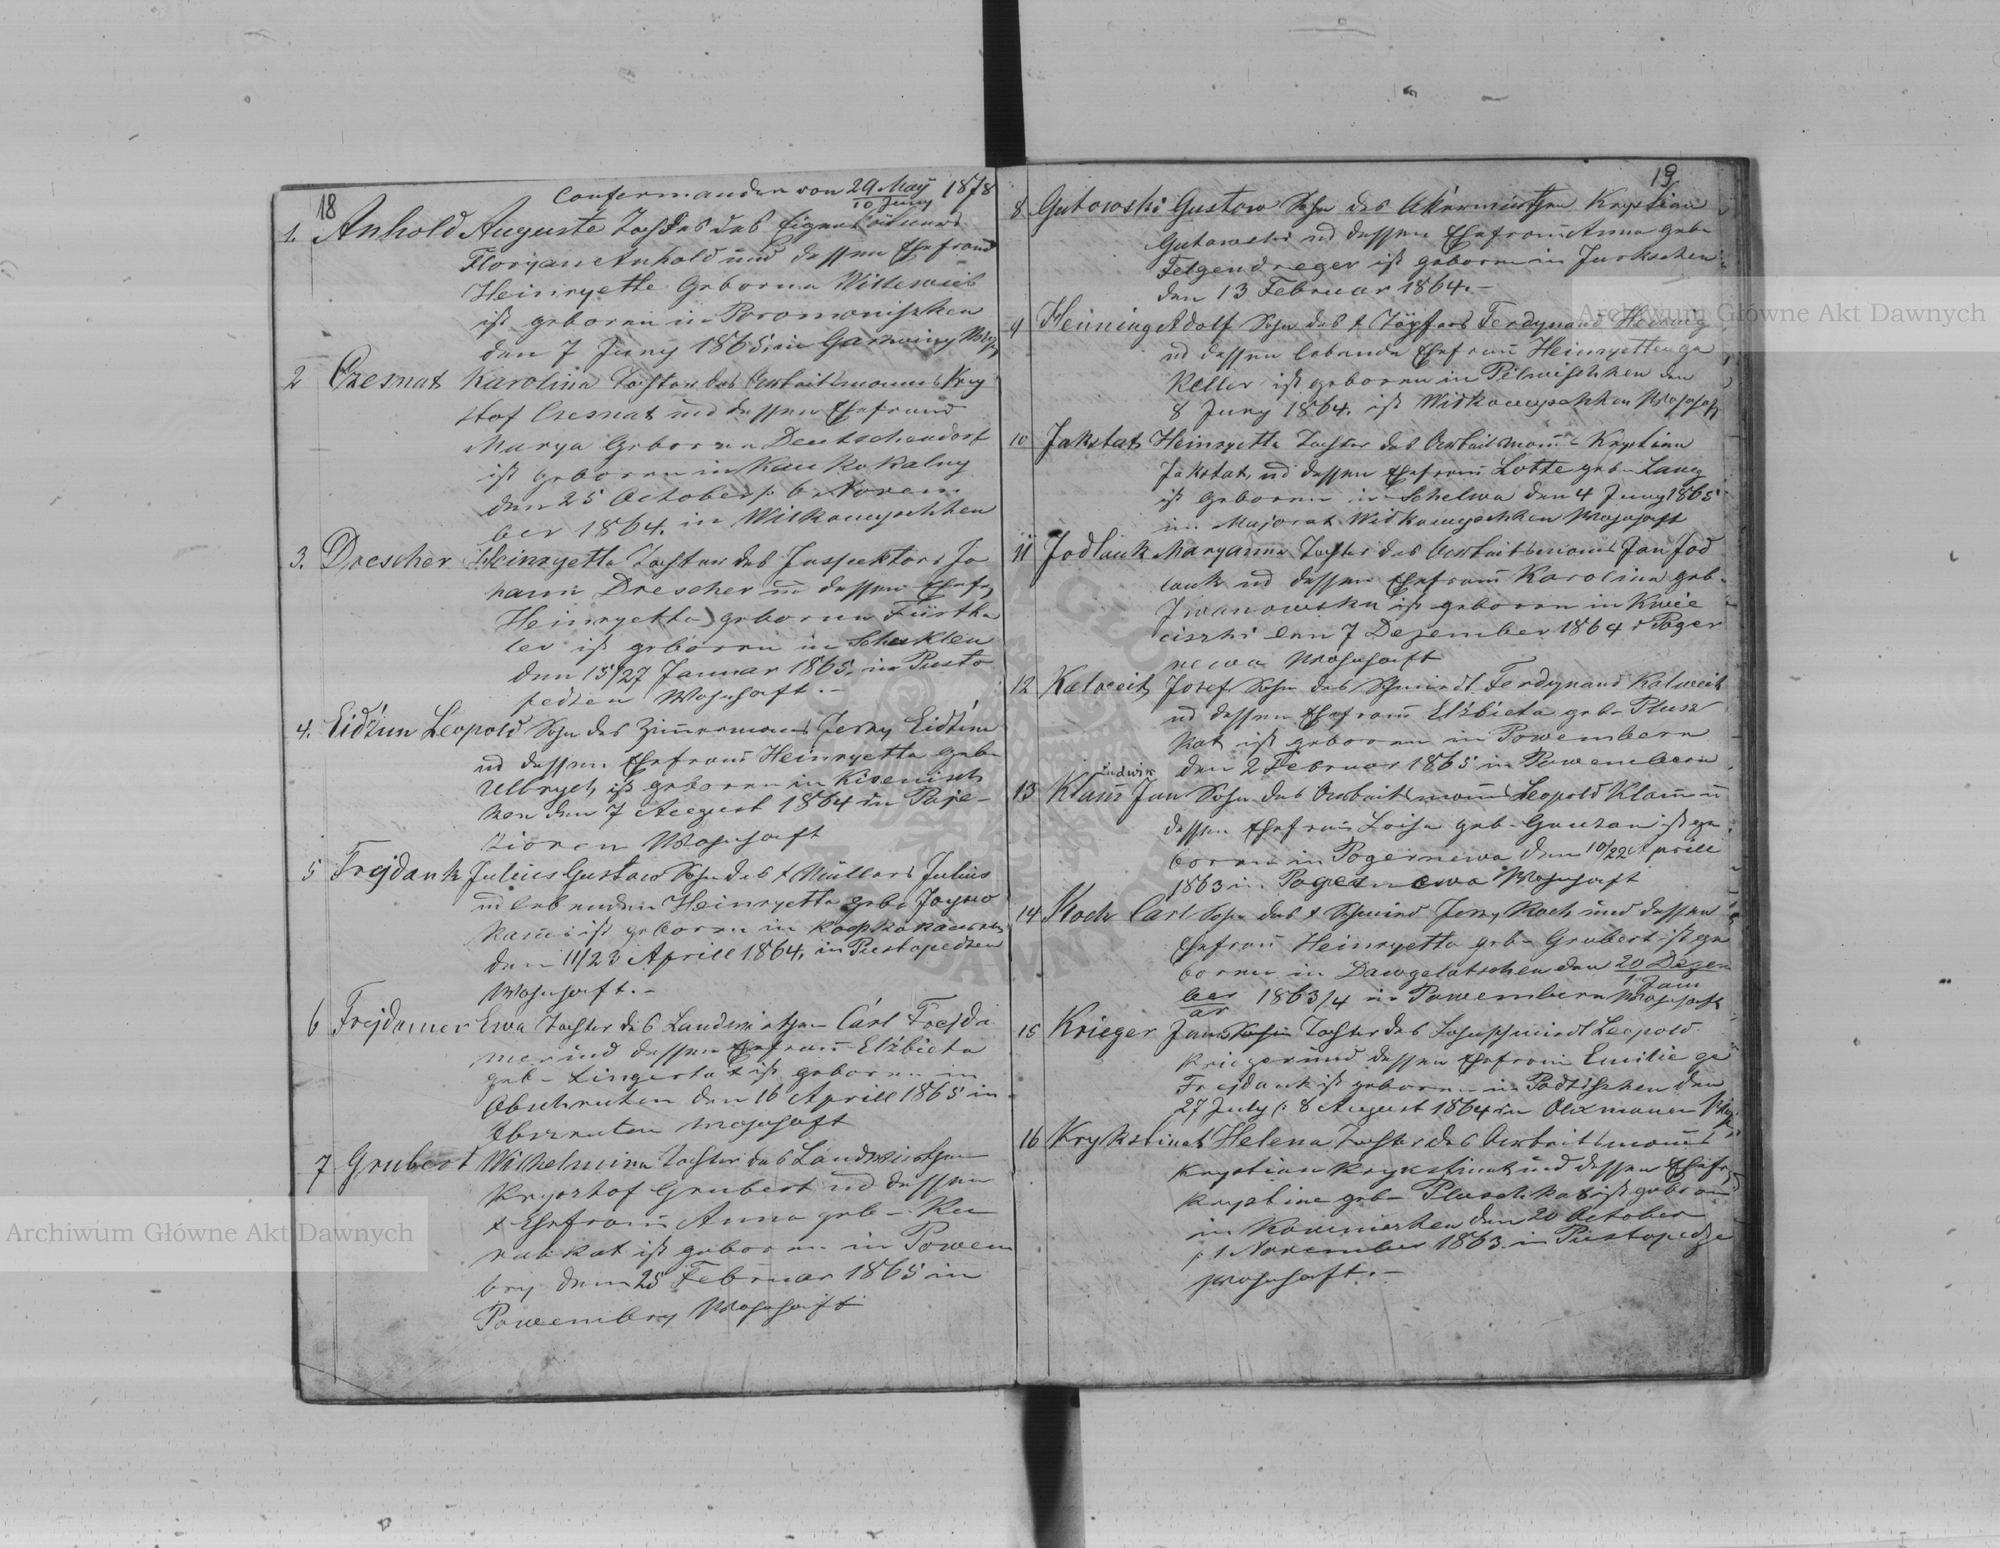 18
Confermanden von 29 May 1878
10 Juny
1. Anhold Auguste Tochter des Eigenthümers
Floryan Anhold und dessen Ehefrau
Heinryette Geborne
ist geboren in Poromonischken
den 7 Juny 1865 in
2 Czesnat Karolina Tochter des Arbeitsmanns Kry
stof Czesnat und dessen Ehefrau
Marya Geborne Deutschendorf
ist geboren in Kaukokalny
den 25 October /: 6 Novem
ber 1864. in Wilkowyschken
3. Drescher Heinryette Tochter des Inspektors Jo
hann Drescher und dessen Ehefr
Heinryetta geborne Fürstha
ler ist geboren in Schuklen
den 15/27 Januar 1865. in Pusto
pedzen Wohnhaft.-
4. Eidzun Leopold Sohn des Zimermans Jerzy Eidzun
und dessen Ehefrau Heinryetta geb-
Ulbrych ist geboren in Kisenisch
ken den 7 August 1864 in Paje-
zioren Wohnhaft
5 Frejdank Julius Gustaw Sohn des + Müllers Julius
und lebenden Heinryetta geb-
ist geboren in
den 11/23 Aprill 1864, in Pustopedzen
Wohnhaft.-
6 Frejdamer Ewa Tochter des Landwirthen Carl Frejda
mer und dessen Ehefrau Elżbieta
geb- Lingertat ist geboren in
Obschruten den 16 Aprill 1865 in
Wohnhaft
7 Grubert Wilhelmina Tochter des Landwirthen
Krysztof Grubert und dessen
+ Ehefrau Anna geb- Ku
rabkat ist geboren in Powem
bry den 25 Februar 1865 in
Powembry Wohnhaft
19
8 Gutowski Gustow Sohn des Krystian
Gutowski und dessen Ehefrau Anna geb-
Felgendreger ist geboren in Jurkschen
den 13 Februar 1864.-
9 Hennig Adolf Sohn des + Töpfers Ferdynand Hennig
und dessen lebende Ehefrau Heinryetta ge
Keller ist geboren in Pilwischken den
8 Juny 1864. ist Wilkowyschken Wohnhaft
10 Jakstat Heinryetta Tochter des Arbeitsmann Krystian
Jakstat, und dessen Ehefrau Lotte geb- Lang
ist geboren in Schelwa den 4 Juny 1865
in Majorat Wilkowyschken Wohnhaft
11 Jodlauk Maryanna Tochter des Arbeitsmans Jan Jod
lauk und dessen Ehefrau Karolina geb-
Iwanowska ist geboren in Kwie
ciszki den 7 Dezember 1864 Poger
newa Wohnhaft
12 Kalweit Josef Sohn des Schmiedt Ferdynand Kalweit
und dessen Ehefrau Elżbieta geb- Plusz
kat ist geboren in Powembern
den 2 Februar 1865 in Powembern
Ludwik
13 Klam Jan Sohn des Arbeitsmann Leopold Klam u
dessen Ehefrau Loisa geb- ist ge
boren in Pogernewa den 10/22 Aprill
1863 in Pogernewa Wohnhaft
14 Koch Carl Sohn des + Schmied Jerzy Koch und dessen
Ehefrau Heinryetta geb- Grubert ist ge
boren in Dawgelatschen den 20 Dezem
1 Janu
ber 1863/4 in Powembern Wohnhaft
ar
15 Krieger Tochter des Leopold
Krieger und dessen Ehefrau Emilie ge
Frejdank ist geboren in Podtischken den
27 July /: 8 August 1864 in Olxmowen
16 Krykstinat Helena Tochter des Arbeitsmanns
Krystian Krykstinat und dessen Ehefr
Krystine geb- Pluschkat ist geboren
in den 20 October
/: 1 November 1863 in Pustopedze
Wohnhaft.-
Archiwum Główne Akt Dawnych
Archiwum Główne Akt Dawnych